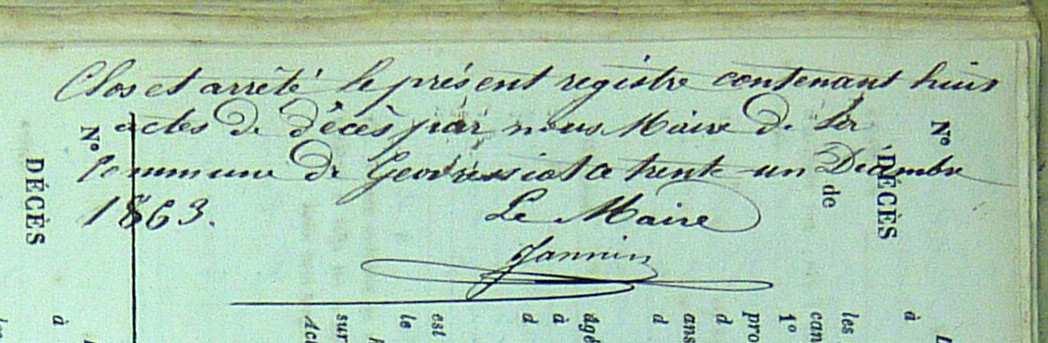 Clos et arrêté le présent registre contenant huit
actes de décès par nous Maire de la
Commune de Geovressiat a trente un Décembre
1863.
Le Maire
Jannin
N°
DÉCÈS
N°
DÉCÈS
de
à
est
le
sur
à
d
ans
d
pro
d
1°
can
les
à